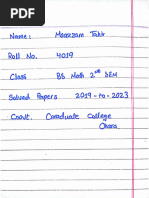 Name: Moazzam Tahir
Roll No. 4019
Class BS Math 2nd SEM
Solved Papers 2019-to-2023
Govt. Graduate College
Chara